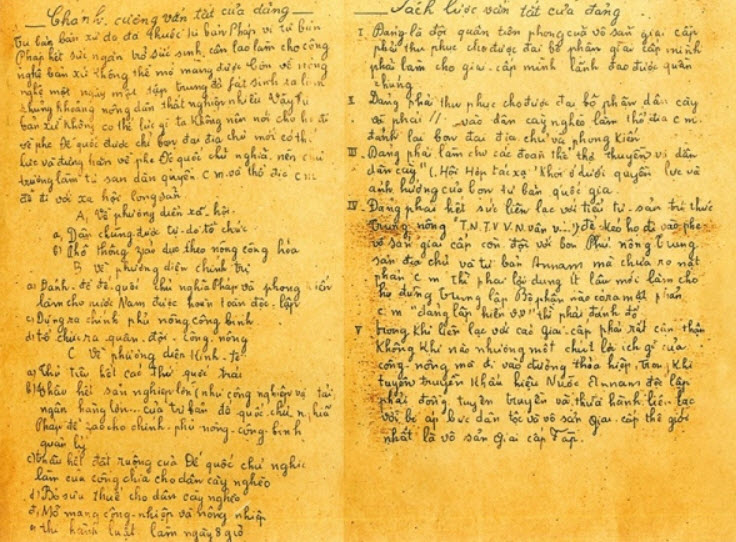 Chánh cương vắn tắt của đảng
Tư bản bản xứ do đã thuộc tư bản Pháp vì tư bản
Pháp hết sức ngăn trở sức sinh
nghệ bản xứ không thể mở mang được. Còn về nông
nghệ một ngày một tập trung đã phát sinh ra lắm
khủng khoảng nông dân thất nghiệp nhiều. Vậy tư
bản xứ không có thế lực gì ta không nên nói cho họ đi
về phe đế quốc được chỉ bọn đại địa chủ mới có thế
lực và đứng hẳn về phe đế quốc chủ nghĩa nên chủ
trương làm tư sản dân quyền C.m. và thổ địa C.m
để đi tới xã hội cộng sản
A, Về phương diện xã-hội.
a, Dân chúng được tự-do tổ chức
B về phương diện chính trị
a) Đánh đổ đế-quốc chủ nghĩa Pháp và phong kiến
làm cho nước Nam được hoàn toàn độc-lập
c) Dựng ra chính phủ nông công binh
d) tổ chức ra quân-đội công nông
C về phương diện Kinh-tế
a) Thủ tiêu hết các thứ quốc trái
b) thâu hết sản nghiệp lớn (như công nghiệp vận tải
ngân hàng lớn... của tư bản đế quốc chủ nghĩa
Pháp để giao cho chính phủ nông-công-binh
quản lý
c) thâu hết đất ruộng của Đế quốc chủ nghĩa
làm của công chia cho dân cày nghèo
d) Bỏ sưu thuế cho dân cày nghèo
đ) Mở mang công-nghiệp và nông nghiệp
e) thi hành luật làm ngày 8 giờ
Sách lược vắn tắt của đảng
I. Đảng là đội quân tiên phong của vô sản giai cấp
phải thu phục cho được đại bộ phận giai cấp mình
phải làm cho giai-cấp mình lãnh đạo được quần
chúng
II. Đảng phải thu phục cho được đại bộ phận dân cày
và phải // vào dân cày nghèo làm thổ địa C.m.
đánh lại bọn đại địa chủ và phong kiến
III. Đảng phải làm cho các đoàn thể thợ thuyền và dân
dân cày" (.Hội Hợp tác xạ "Khỏi ở dưới quyền lực và
ảnh hưởng của bọn tư bản quốc gia.
IV. Đảng phải hết sức liên lạc với tiểu tư-sản trí thức
trung nông "T.N. T.V V.N. vân v...) để kéo họ đi vào phe
vô sản giai cấp còn đối với bọn Phú nông trung
sản địa chủ và tư bản Annam mà chưa rõ mặt
phản C.m thì phải lợi dụng ít lâu mới làm cho
họ đứng trung lập Bộ phận nào đã ra mặt phản
C.m "đảng lập hiến v.v" thì phải đánh đổ
V. trong Khi liên lạc với các Giai-cấp phải rất cẩn thận
Không khi nào nhường một chút lợi ích gì của
công-nông mà đi vào đường thỏa hiệp. Trong Khi
tuyên truyền Khẩu hiệu Nước Annam độc lập
phải đồng tuyên truyền và thực hành liên-lạc
với bị áp bức dân tộc và vô sản Giai-cấp thế giới
nhất là vô sản Giai cấp Pháp.